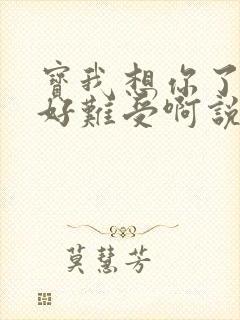 寶我想你了
好難受啊說
莫慧芳